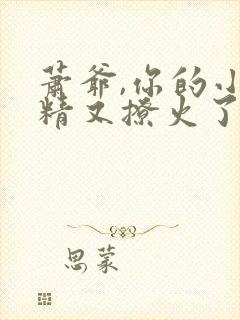 萧爷,你的小
精又撩火了
思蒙